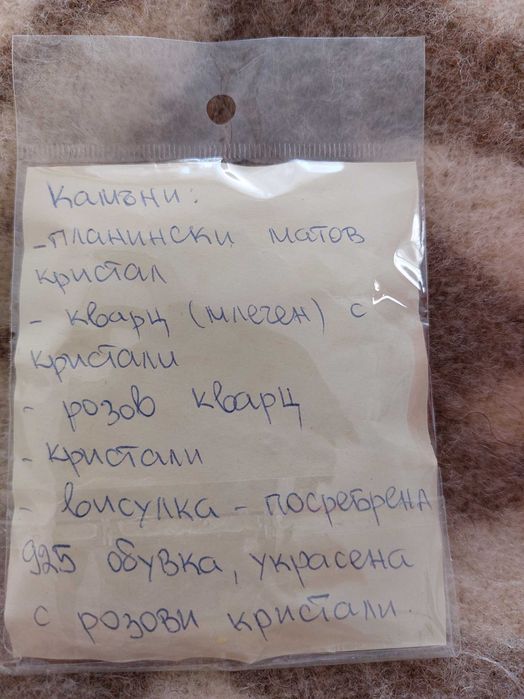 Камъни:
-планински матов
кристал
- кварц (млечен) с
кристали
- розов кварц
- кристали
- висулка - посребрена
925 обувка, украсена
с розови кристали.